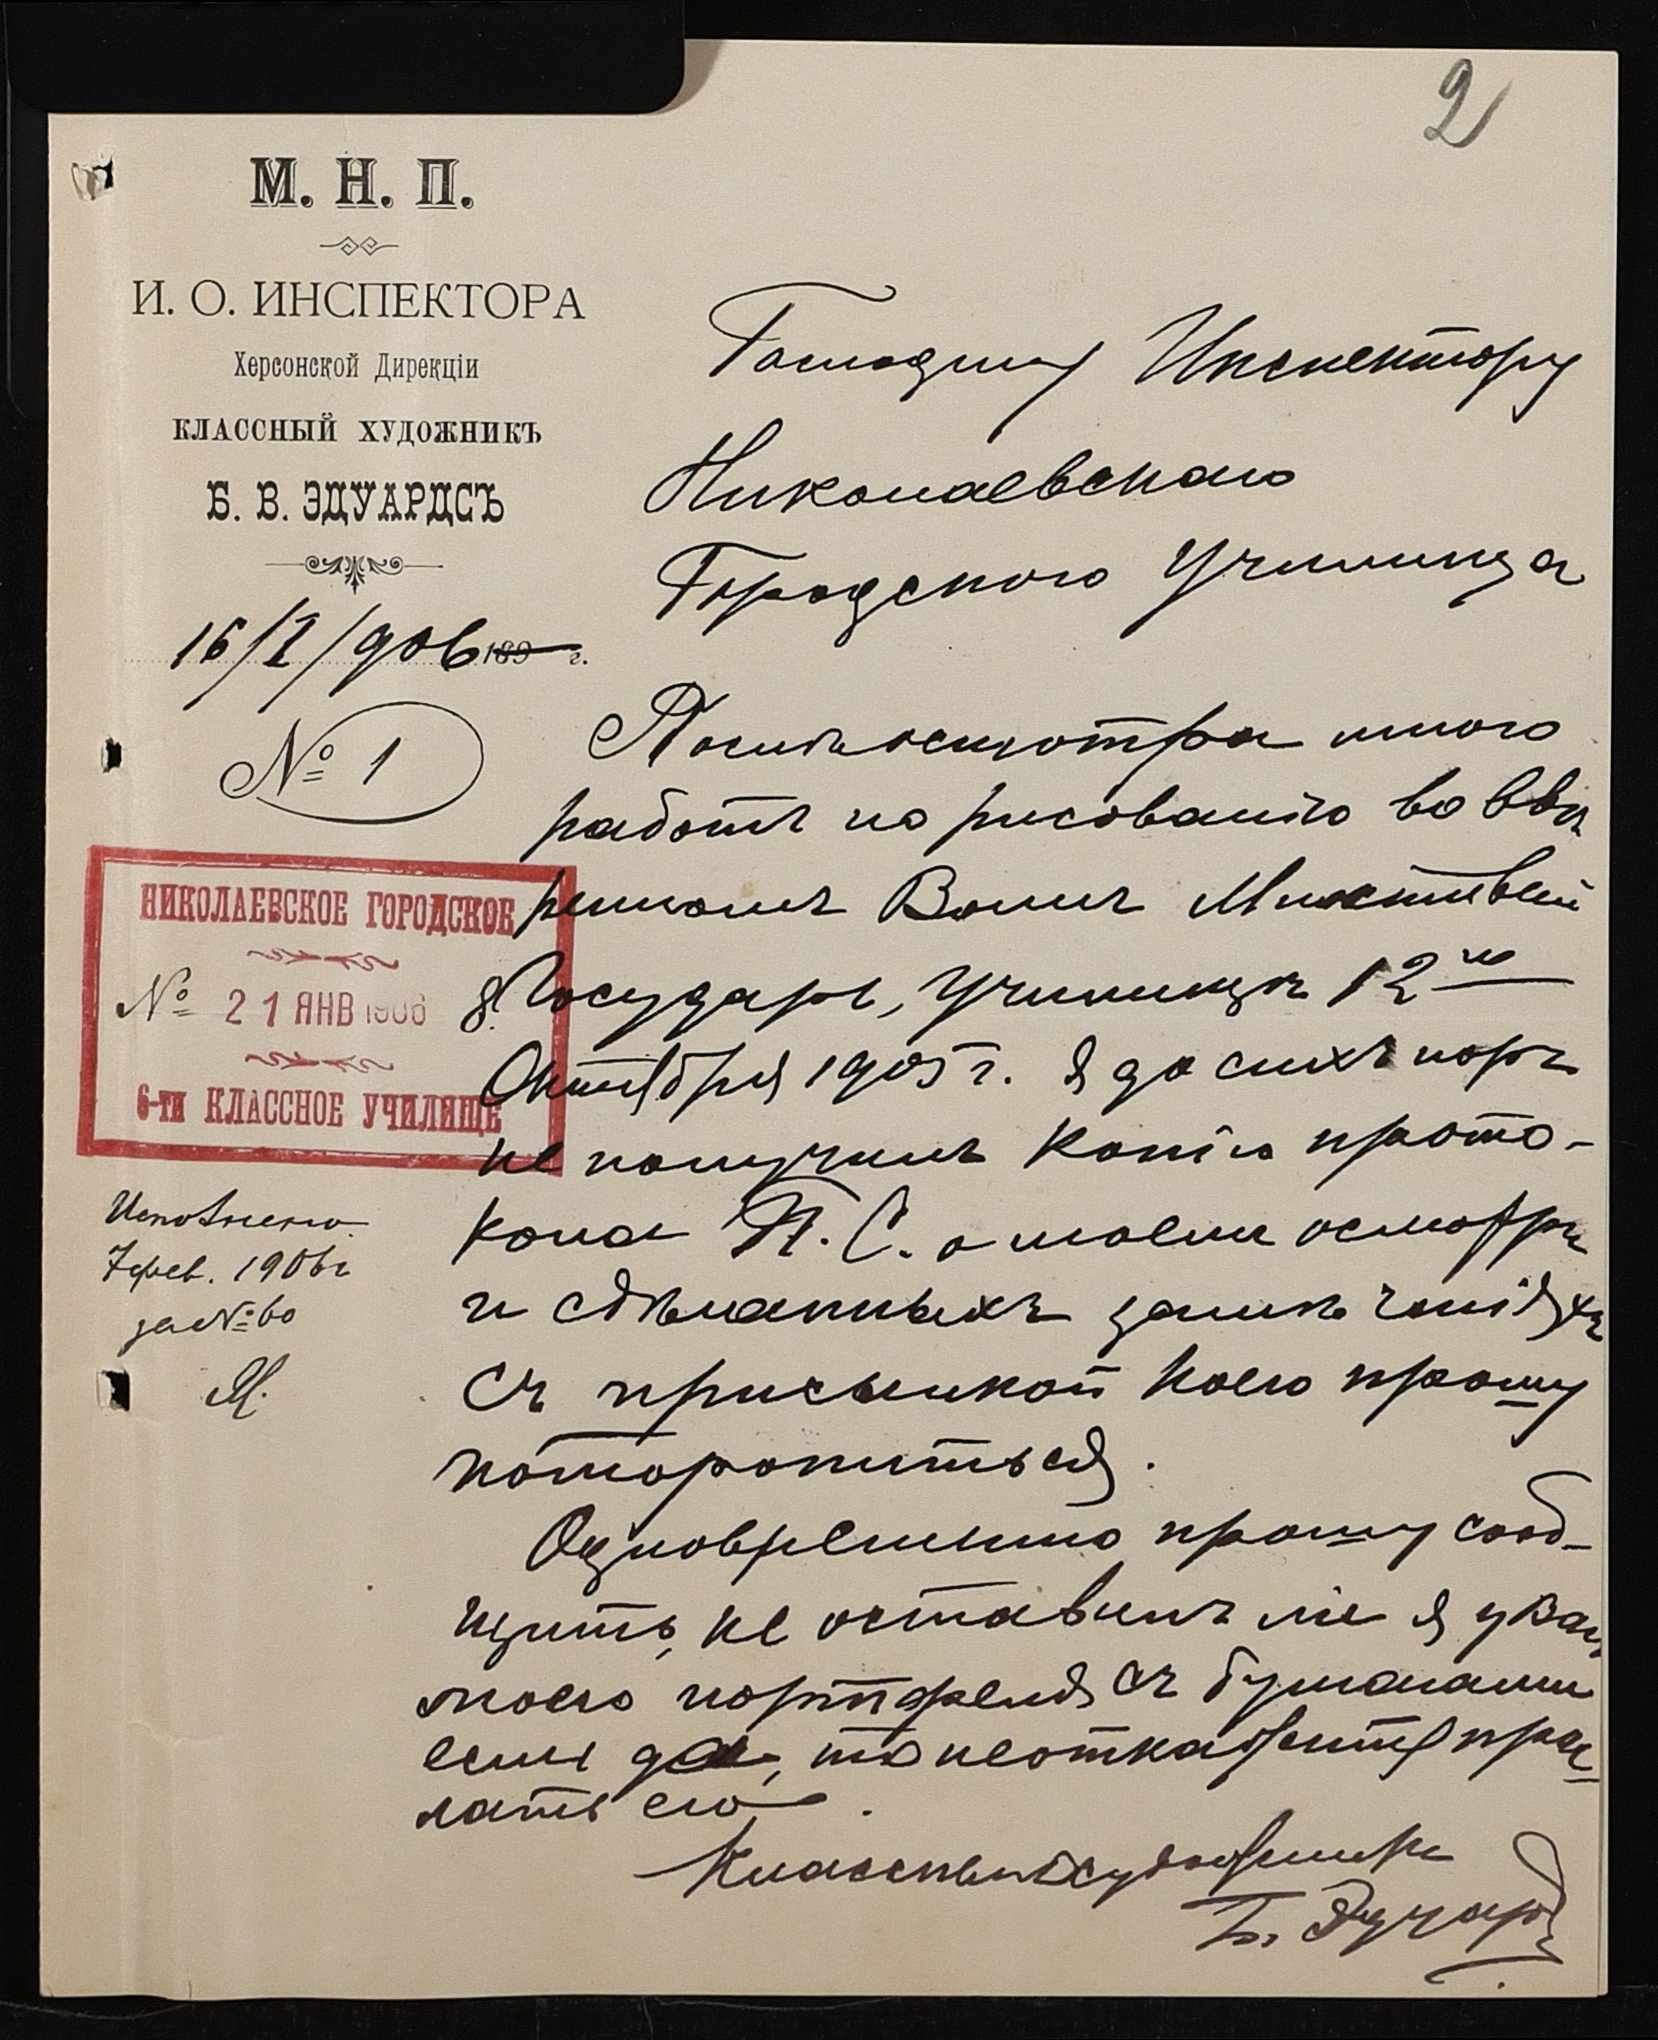 2
М. Н. П.
И. О. ИНСПЕКТОРА
Херсонской Дирекціи
КЛАССНЫЙ ХУДОЖНИКЪ
Б. В. ЭДУАРДСЪ
16/I/906 189 г.
№ 1
НИКОЛАЕВСКОЕ ГОРОДСКОЕ
№ 21 ЯНВ 1906
6-ти КЛАССНОЕ УЧИЛИЩЕ
Исполнено
7 фев. 1906 г
за № 60
Господину Инспектору
Николаевскаго
Городского Училища
Послѣ осмотра мною
работъ по рисованію во ввѣ
ренномъ Вамъ Милостивый
Государь, Училищѣ 12го
Октября 1905 г. я до сихъ поръ
не получилъ копію прото-
кола П. С. о моемъ осмотрѣ
и сдѣланныхъ замѣчаніяхъ
съ присылкой коего прошу
поторопиться.
Одновременно прошу сооб-
щить, не оставилъ ли я у Васъ
моего портфеля съ бумагами
если да, то не откажите прис
лать его.
Классный художникъ
Б. Эдуардсъ